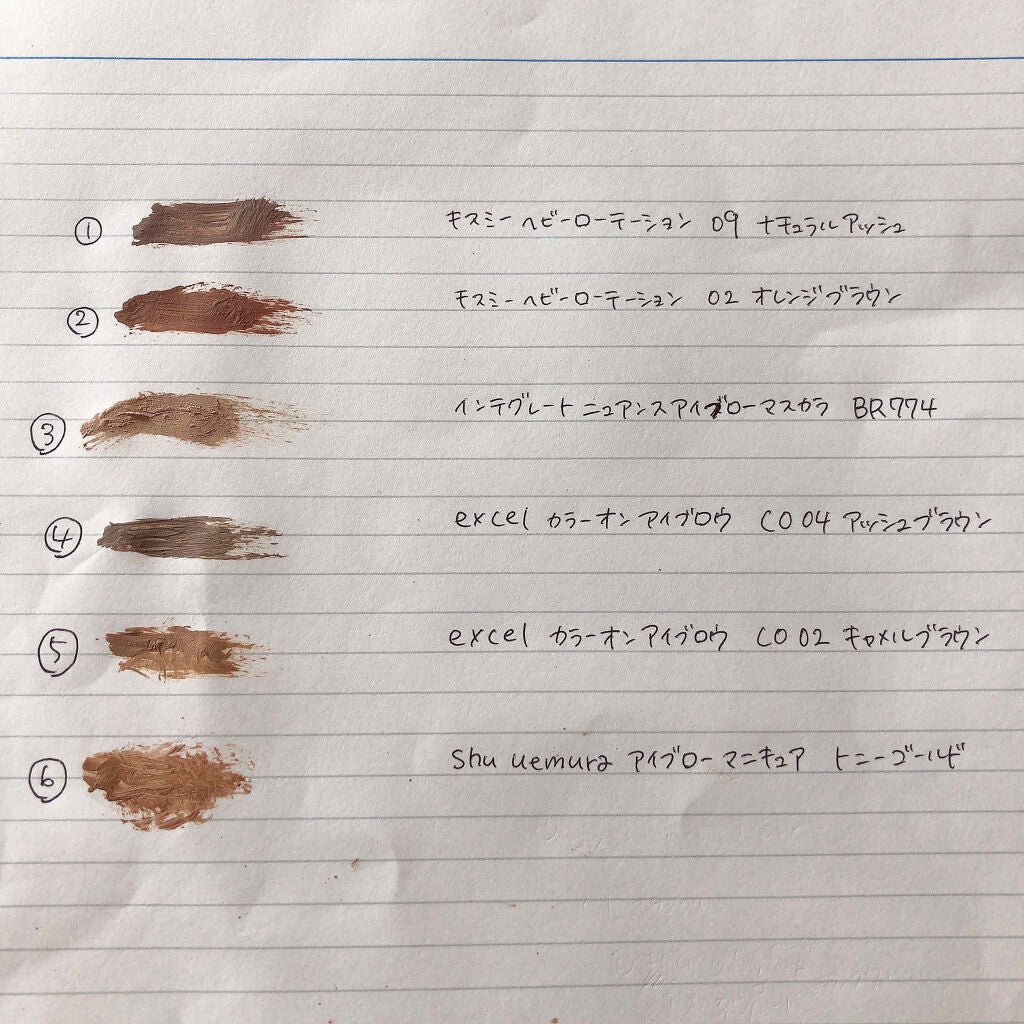 ① キスミー ヘビーローテーション 09 ナチュラルアッシュ
② キスミー ヘビーローテーション 02 オレンジブラウン
③ インテグレート ニュアンスアイブローマスカラ BR774
④ excel カラーオン アイブロウ CO 04 アッシュブラウン
⑤ excel カラーオン アイブロウ CO 02 キャメルブラウン
⑥ Shu uemura アイブローマニキュア トニーゴールド